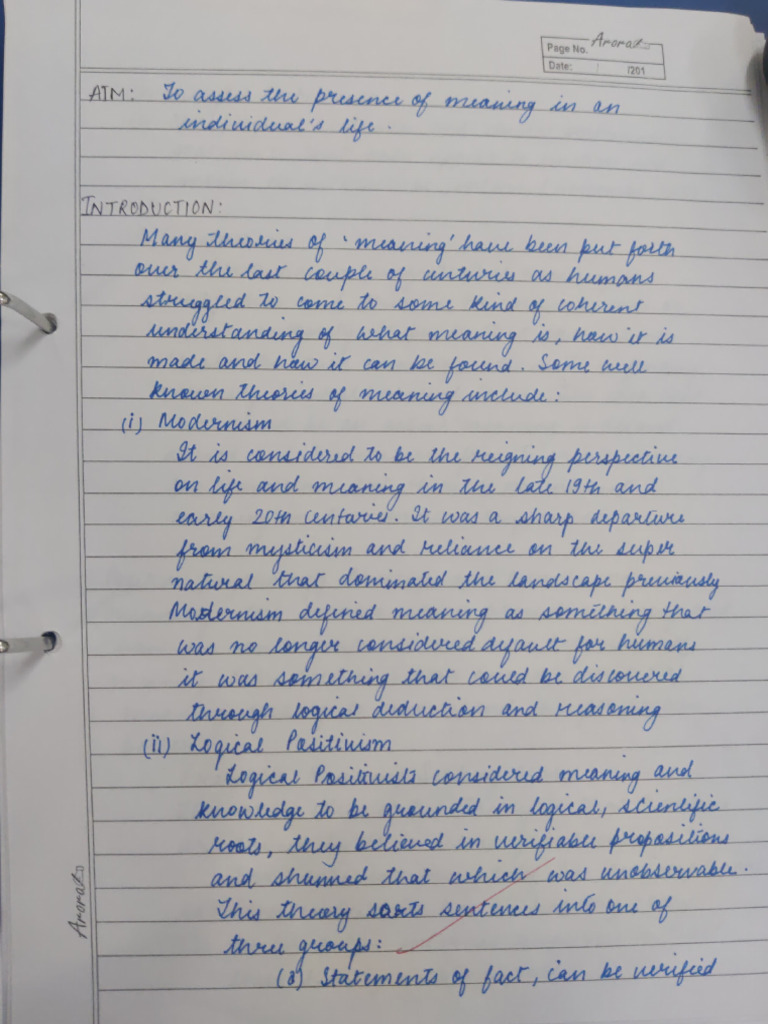 Page No. Aroraz
Date: / /201
AIM: To assess the presence of meaning in an
individual's life.
INTRODUCTION:
Many theories of 'meaning' have been put forth
over the last couple of centuries as humans
struggled to come to some kind of coherent
understanding of what meaning is, how it is
made and how it can be found. Some well
known theories of meaning include:
(i) Modernism
It is considered to be the reigning perspective
on life and meaning in the late 19th and
early 20th centuries. It was a sharp departure
from mysticism and reliance on the super
natural that dominated the landscape previously
Modernism defined meaning as something that
was no longer considered default for humans
it was something that could be discovered
through logical deduction and reasoning
(ii) Logical Positivism
Logical Positivists considered meaning and
knowledge to be grounded in logical, scientific
roots, they believed in verifiable propositions
and shunned that which was unobservable.
This theory sorts sentences into one of
three groups:
(a) Statements of fact, can be verified
Aroraz